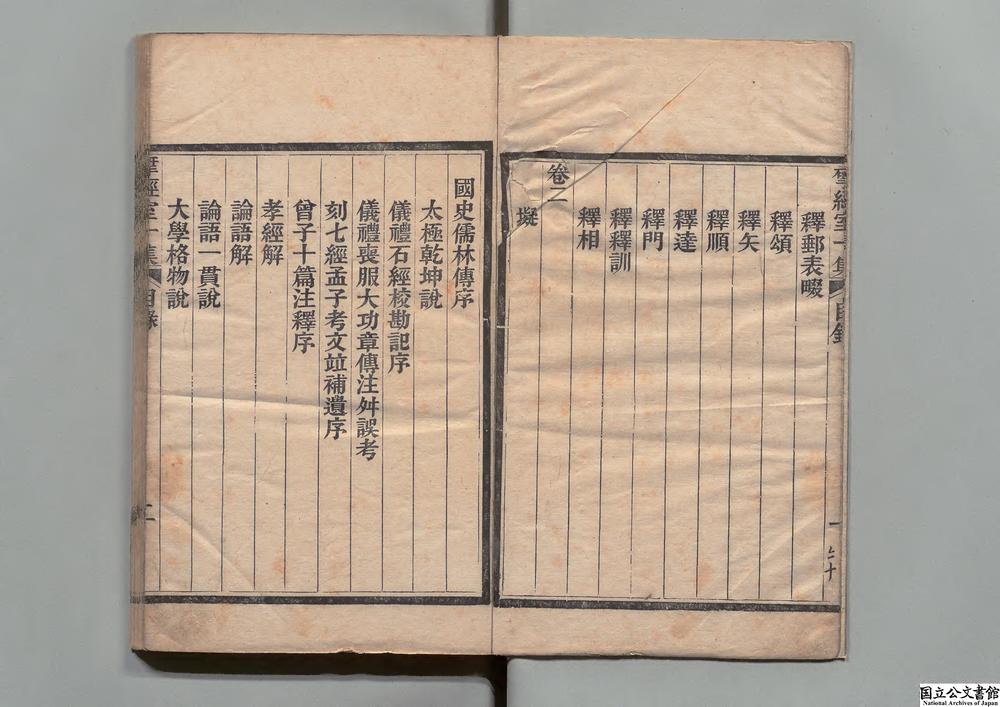 揅經室一集 目錄 一
釋郵表畷
釋頌
釋矢
釋順
釋達
釋門
釋釋訓
釋相
卷二
擬
國史儒林傳序
太極乾坤說
儀禮石經校勘記序
儀禮喪服大功章傳注舛誤考
刻七經孟子考文竝補遺序
曾子十篇注釋序
孝經解
論語解
論語一貫說
大學格物說
揅經室一集 目錄 二
国立公文書館
National Archives of Japan